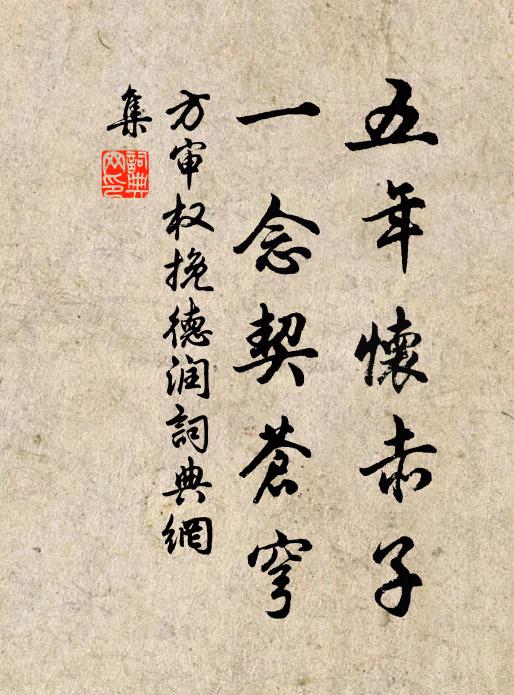 五年懷赤子
一念契蒼穹
方审权挽德润詞典網
集
詞典网印